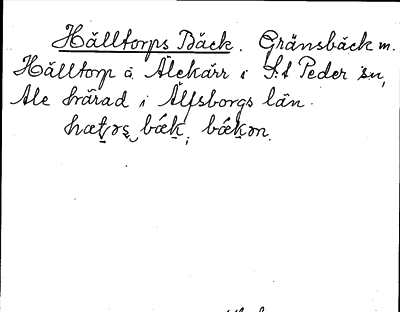 Hålltorps Bäck. Gränsbäck m.
Hålltorp o. Älekärr i S:t Peder sn,
Ale härad i Älfsborgs län.
hætǫs bǽk, bǽkən.